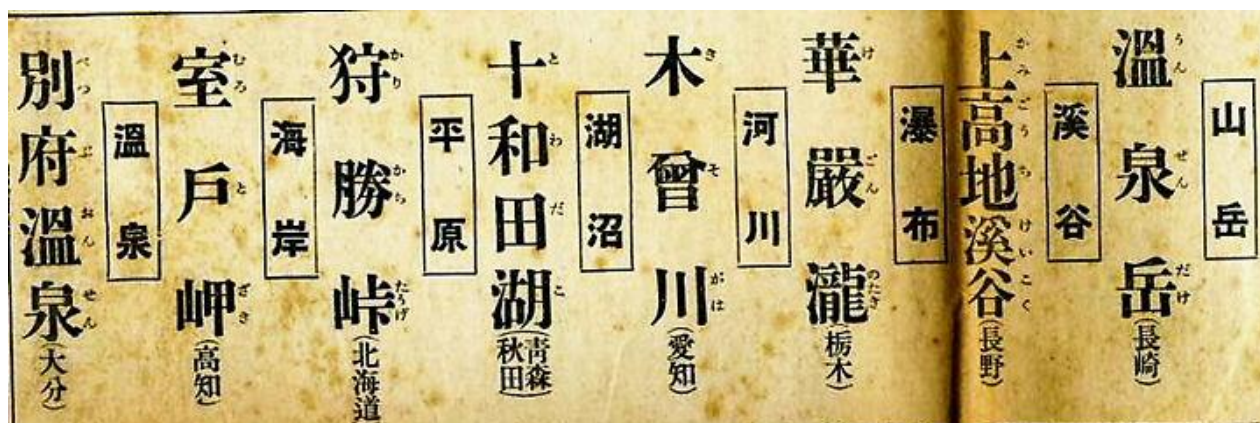 山岳
溫泉岳(長崎)
うんぜんだけ
溪谷
上高地溪谷(長野)
かみごうちけいこく
瀑布
華嚴瀧(栃木)
けごんのたき
河川
木曾川(愛知)
きそがは
湖沼
十和田湖(靑森秋田)
とわだこ
平原
狩勝峠(北海道
かりかちだうげ
海岸
室戶岬(高知)
むろとざき
溫泉
別府溫泉(大分)
べつぷおんせん